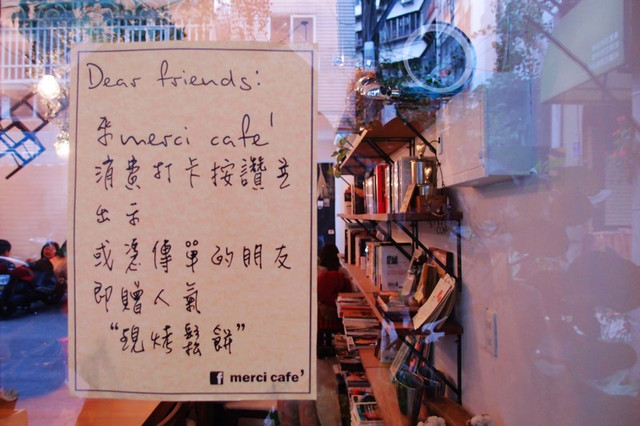 Dear friends:
來merci cafe'
消費打卡按讚並
出示
或憑傳單的朋友
即贈人氣
“現烤鬆餅”
f merci cafe'